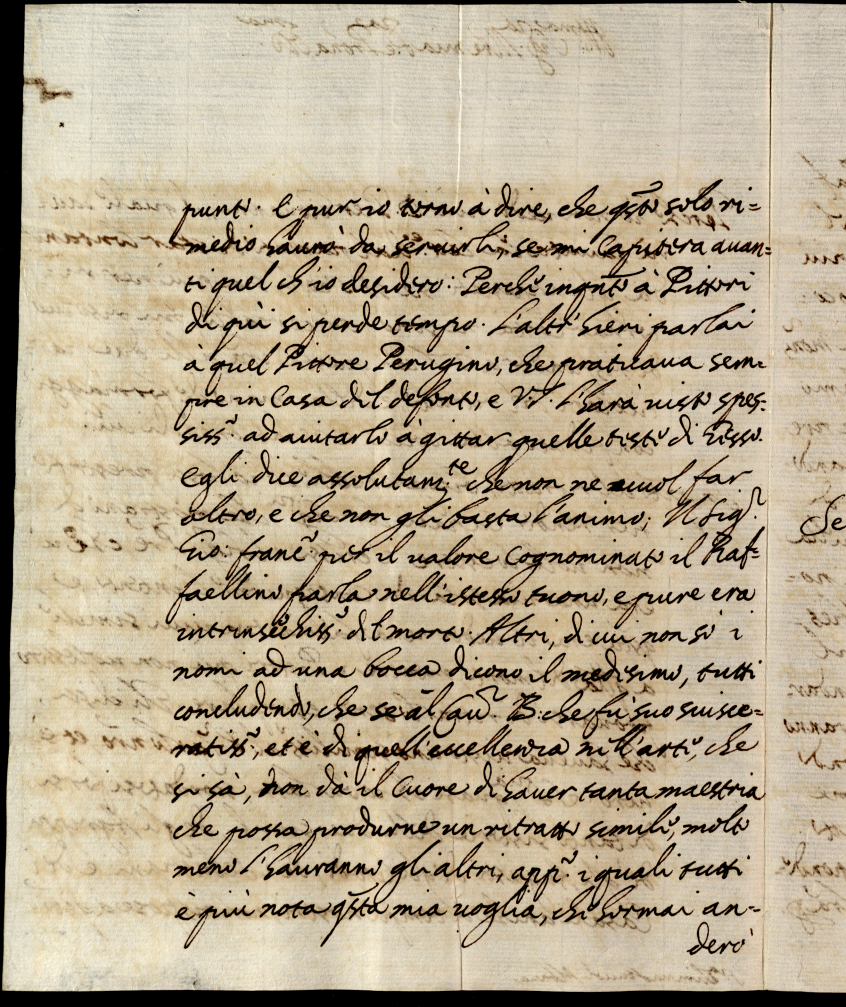 punto. E pur io torno à dire, che qsto solo ri=
medio haurò da seruirli, se mi capiterà auan=
ti quel ch'io desidero: Perche inqnto à Pittori
di qui si perde tempo. L'altr'hieri parlai
à quel Pittore Perugino, che praticaua sem=
pre in Casa del defonto, e V.S. l'harà uisto spes=
siss.° ad aiutarlo à gittar quelle teste di Gesso.
Egli dice assolutam.te che non ne uuol far
altro, e che non gli basta l'animo; Il Sig.r
Gio: Franc.° per il ualore cognominato il Raf=
faellino parla nell'istesso tuono, e pure era
intrinsechiss.° del morto. Altri, di cui non sò i
nomi ad una bocca dicono il medesimo, tutti
concludendo, che se al Cau.r B. che fù suo suisce=
ratiss.°, et è di quell'eccellenza nell'arte, che
si sà, non dà il Cuore di hauer tanta maestria
che possa produrne un ritratto simile, molto
meno l'hauranno gli altri, app.° i quali tutti
è più nota qsta mia uoglia, che hormai an=
derò